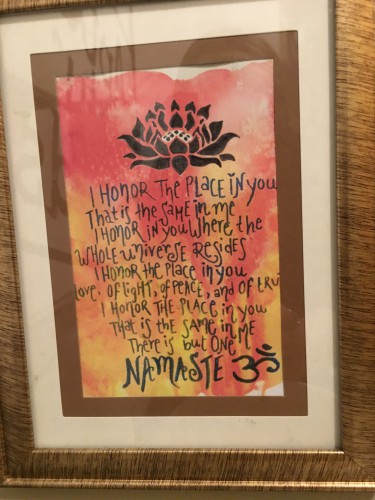 I HONOR THE PLACE IN YOU
THAT IS THE SAME IN ME
I HONOR IN YOU WHERE THE
WHOLE UNIVERSE RESIDES
I HONOR THE PLACE IN YOU
love, OF LIGHT, OF PEACE, AND OF TRU
I HONOR THE PLACE IN YOU
THAT IS THE SAME IN ME
THERE IS BUT ONE
NAMASTE ॐ